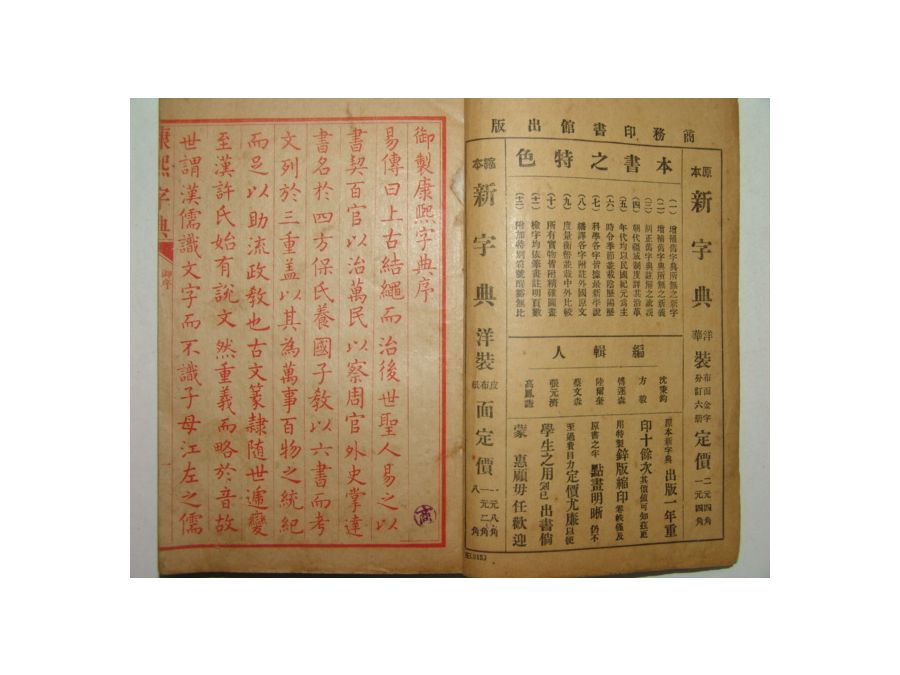 商務印書館出版
原本
新字典
洋裝 布面金字
華裝 分訂六冊
定價
二元四角
一元四角
本書之特色
(一)增補舊字典所無之新字
(二)增補舊字典所無之新義
(三)訂正舊字典註解之訛誤
(四)朝代疆域制度詳其沿革
(五)年代均以民國紀元爲主
(六)時令季節並載陰曆陽歷
(七)科學各字皆據最新學說
(八)繙譯各字附註外國原文
(九)度量衡幣並載中外比較
(十)所有實物皆附精確圖畫
(十一)檢字均依筆畫註明頁數
(十二)附加特別符號醒豁無比
編輯人
沈秉鈞
方毅
傅運森
陸爾奎
蔡文森
張元濟
高鳳謙
原本新字典出版一年重
印十餘次其價值可知茲更
用特製鋅版縮印卷帙僅及
原書之半點畫明晰仍不
至過費目力定價尤廉以便
學生之用刻已出書倘
蒙惠顧毋任歡迎
縮本
新字典
洋裝
皮布紙面定價
一元八角
一元二角
八角
御製康熙字典序
易傳曰上古結繩而治後世聖人易之以
書契百官以治萬民以察周官外史掌達
書名於四方保氏養國子教以六書而考
文列於三重蓋以其為萬事百物之統紀
而足以助流政教也古文篆隸隨世遞變
至漢許氏始有說文然重義而略於音故
世謂漢儒識文字而不識子母江左之儒
康熙字典
御序
一